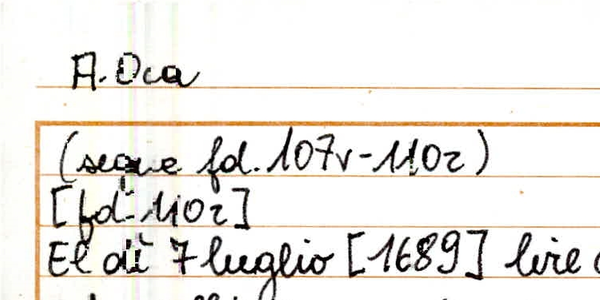 A. Oca
(segue fd. 107v-110r)
[fd. 110r]
El dì 7 luglio [1689] lire